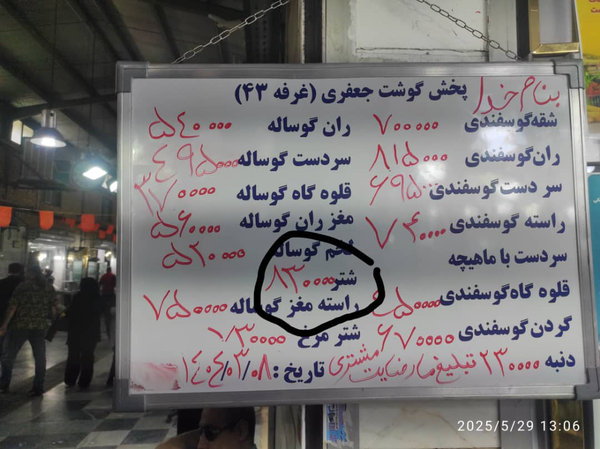 بنام خدا پخش گوشت جعفری (غرفه ۴۳)
شقه گوسفندی ۷۰۰۰۰۰ ران گوساله ۵۴۰۰۰۰
ران گوسفندی ۸۱۵۰۰۰ سردست گوساله ۴۹۵۰۰۰
سر دست گوسفندی ۶۹۵۰۰۰ قلوه گاه گوساله ۳۷۰۰۰۰
راسته گوسفندی ۷۴۰۰۰۰ مغز ران گوساله ۵۶۰۰۰۰
سردست با ماهیچه گوساله ۵۲۰۰۰۰
قلوه گاه گوسفندی ۵۰۰۰۰ شتر ۸۳۰۰۰۰
راسته مغز گوساله ۷۵۰۰۰۰
گردن گوسفندی ۶۷۰۰۰۰ شتر مرغ ۷۳۰۰۰۰
دنبه ۲۳۰۰۰۰ تبلیغ ما رضایت مشتری تاریخ : ۱۴۰۴/۰۳/۰۸
2025/5/29 13:06